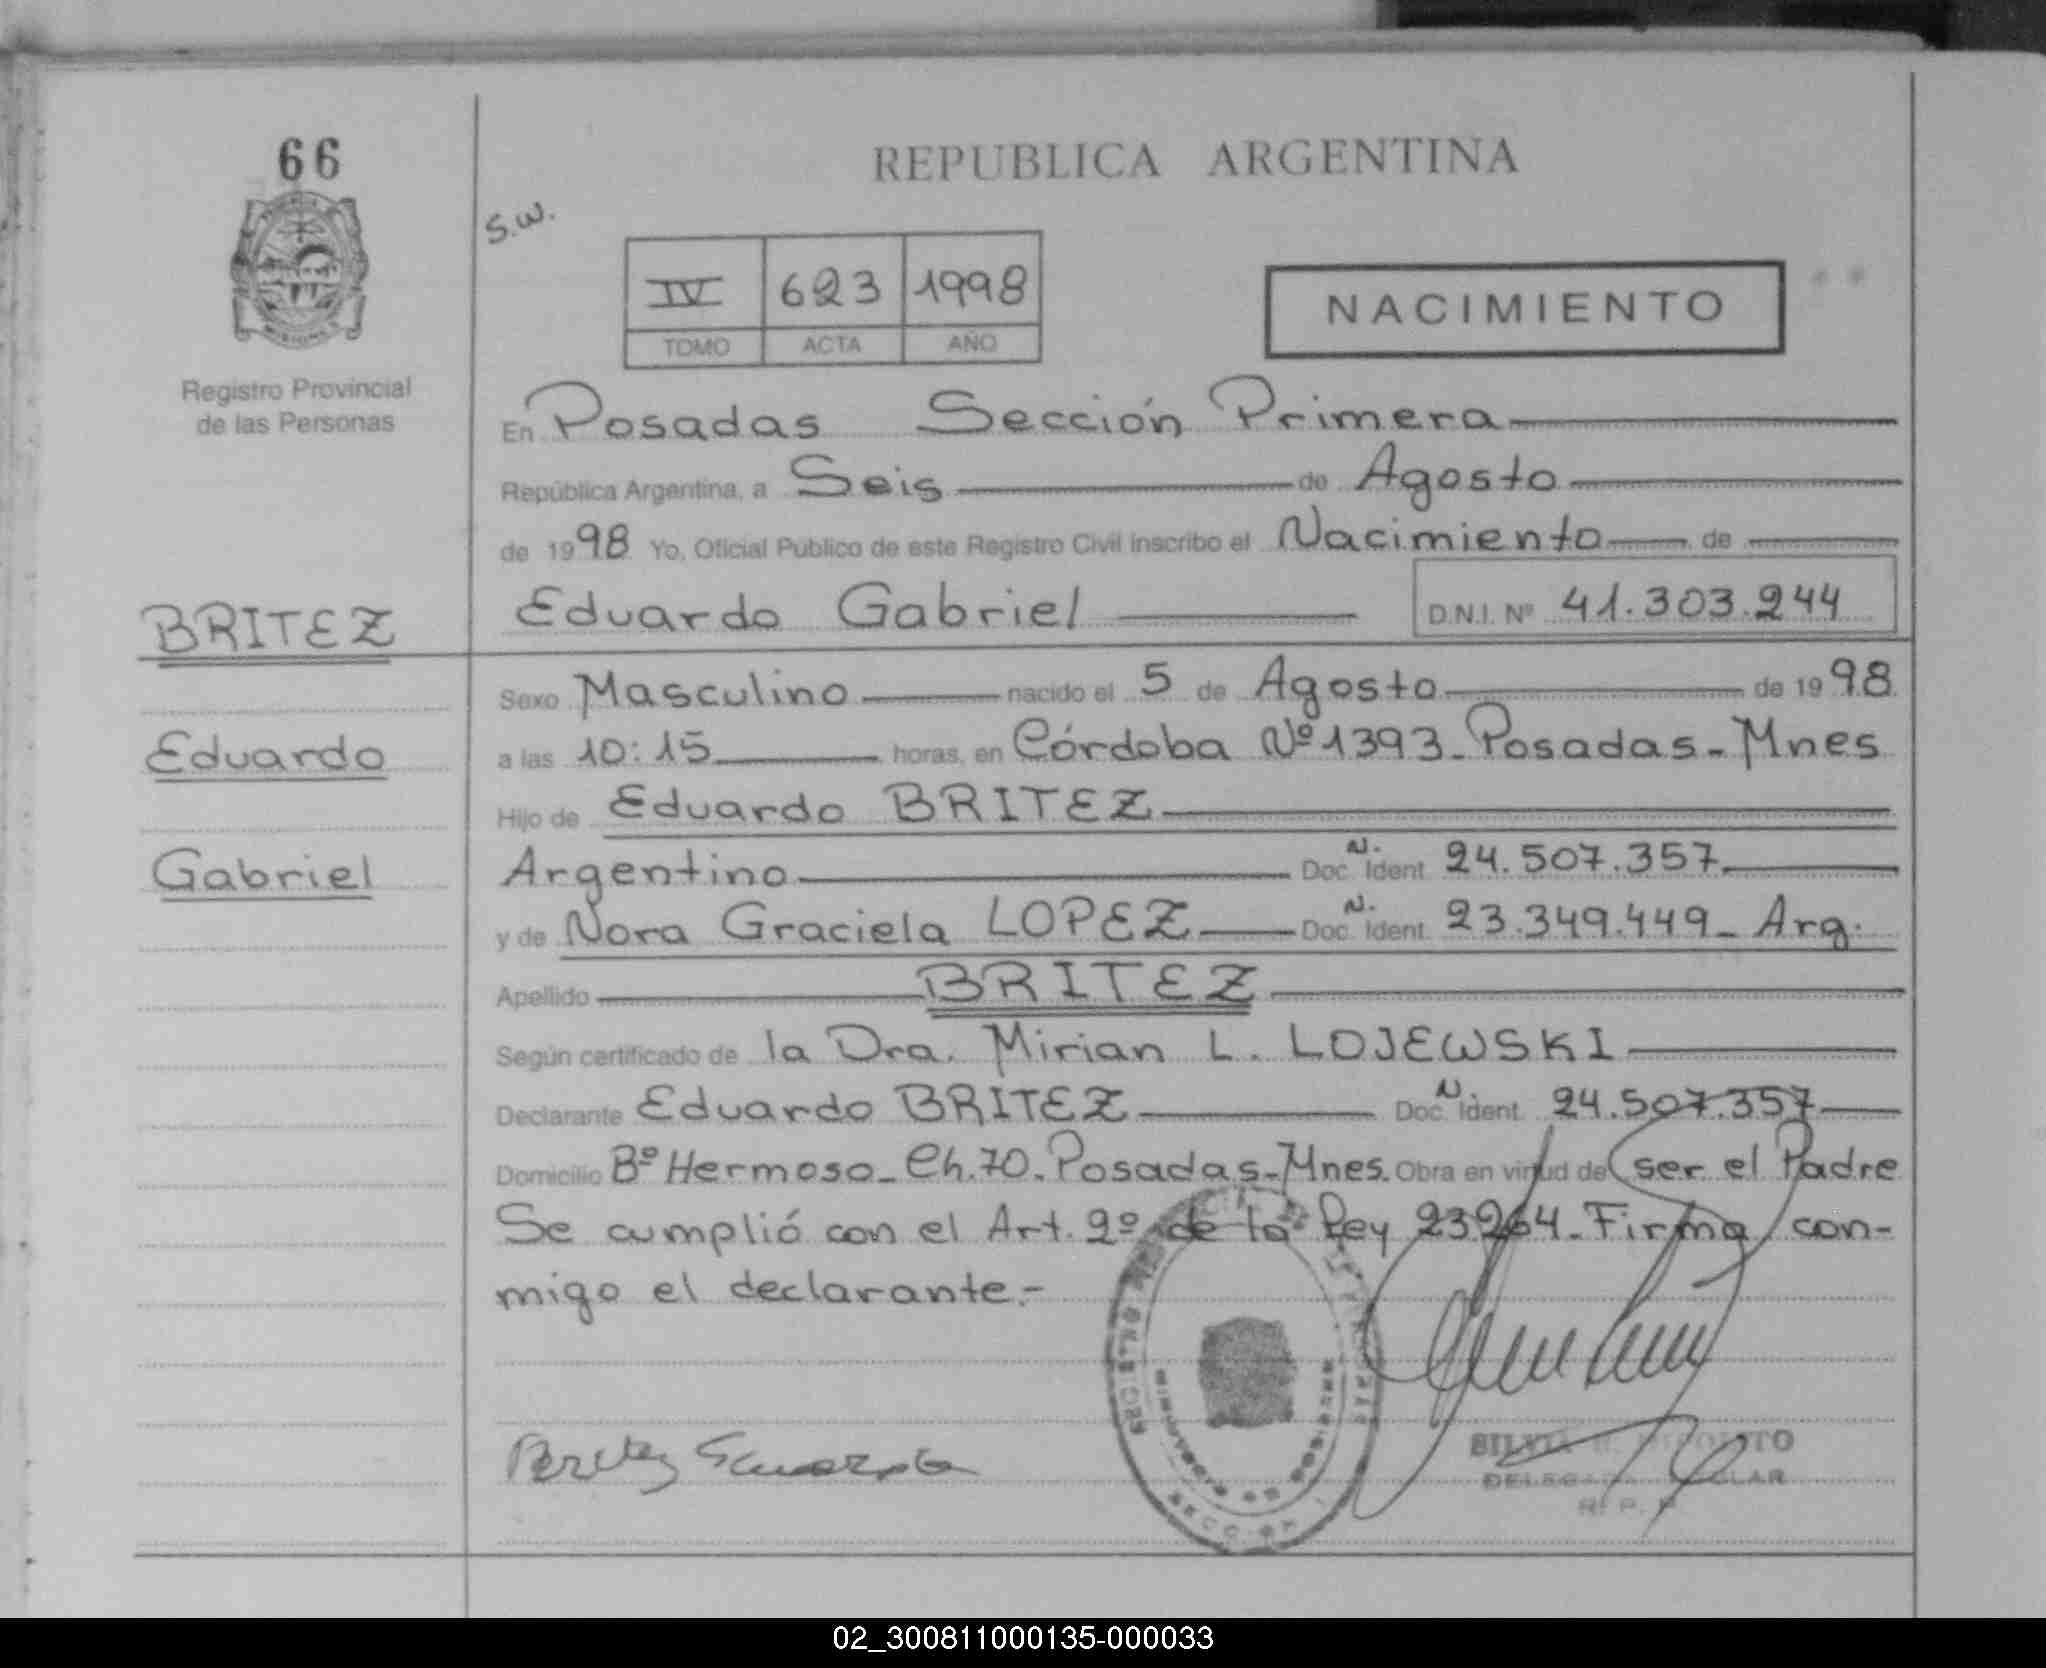 66
REPUBLICA ARGENTINA
S.W.
IV 623 1998
TOMO ACTA AÑO
NACIMIENTO
Registro Provincial
de las Personas
En Posadas Sección Primera
República Argentina, a Seis de Agosto
de 1998 Yo, Oficial Público de este Registro Civil inscribo el Nacimiento de
BRITEZ
Eduardo Gabriel D.N.I. Nº 41.303.244
Sexo Masculino nacido el 5 de Agosto de 1998
Eduardo
a las 10:15 horas, en Córdoba Nº 1393 - Posadas - Mnes
Hijo de Eduardo BRITEZ
Gabriel
Argentino Doc. N. Ident. 24.507.357
y de Nora Graciela LOPEZ Doc. N. Ident. 23.349.449 - Arg.
Apellido BRITEZ
Según certificado de la Dra. Mirian L. LOJEWSKI
Declarante Eduardo BRITEZ Doc. N. Ident. 24.507.357
Domicilio Bº Hermoso - Ch. 70 - Posadas - Mnes. Obra en virtud de ser el Padre
Se cumplió con el Art. 2º de la Ley 23264 - Firma con-
migo el declarante.-
Britez Eduardo
R. P. P.
02_300811000135-000033